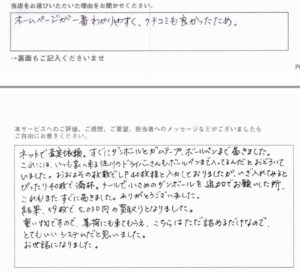 当店をお選びいただいた理由をお聞かせください。
ホームページが一番わかりやすく、クチコミも良かったため。
→裏面もご記入くださいませ
本サービスへのご評価、ご感想、ご要望、担当者へのメッセージなどがございましたら
ご自由にお書きください。
ネットで査定依頼。すぐにダンボールとガムテープ、ボールペンまで届きました。
これには、いつも家に来る佐川のドライバーさんもボールペンまで入ってるんだとおどろいて
いました。おおよその枚数でLP40枚程と入力しておりましたが、いざ入れてみると
ぴったり40枚で満杯。メールで小さめのダンボールを追加でお願いした所、
これもまたすぐに届きました。ありがとうございました。
結果、49枚で5,030円の買取りとなりました。
重い物ですので、集荷にも来てもらえ、こちらはただ詰めるだけなので、
とてもいいシステムだと思いました。
お世話になりました。